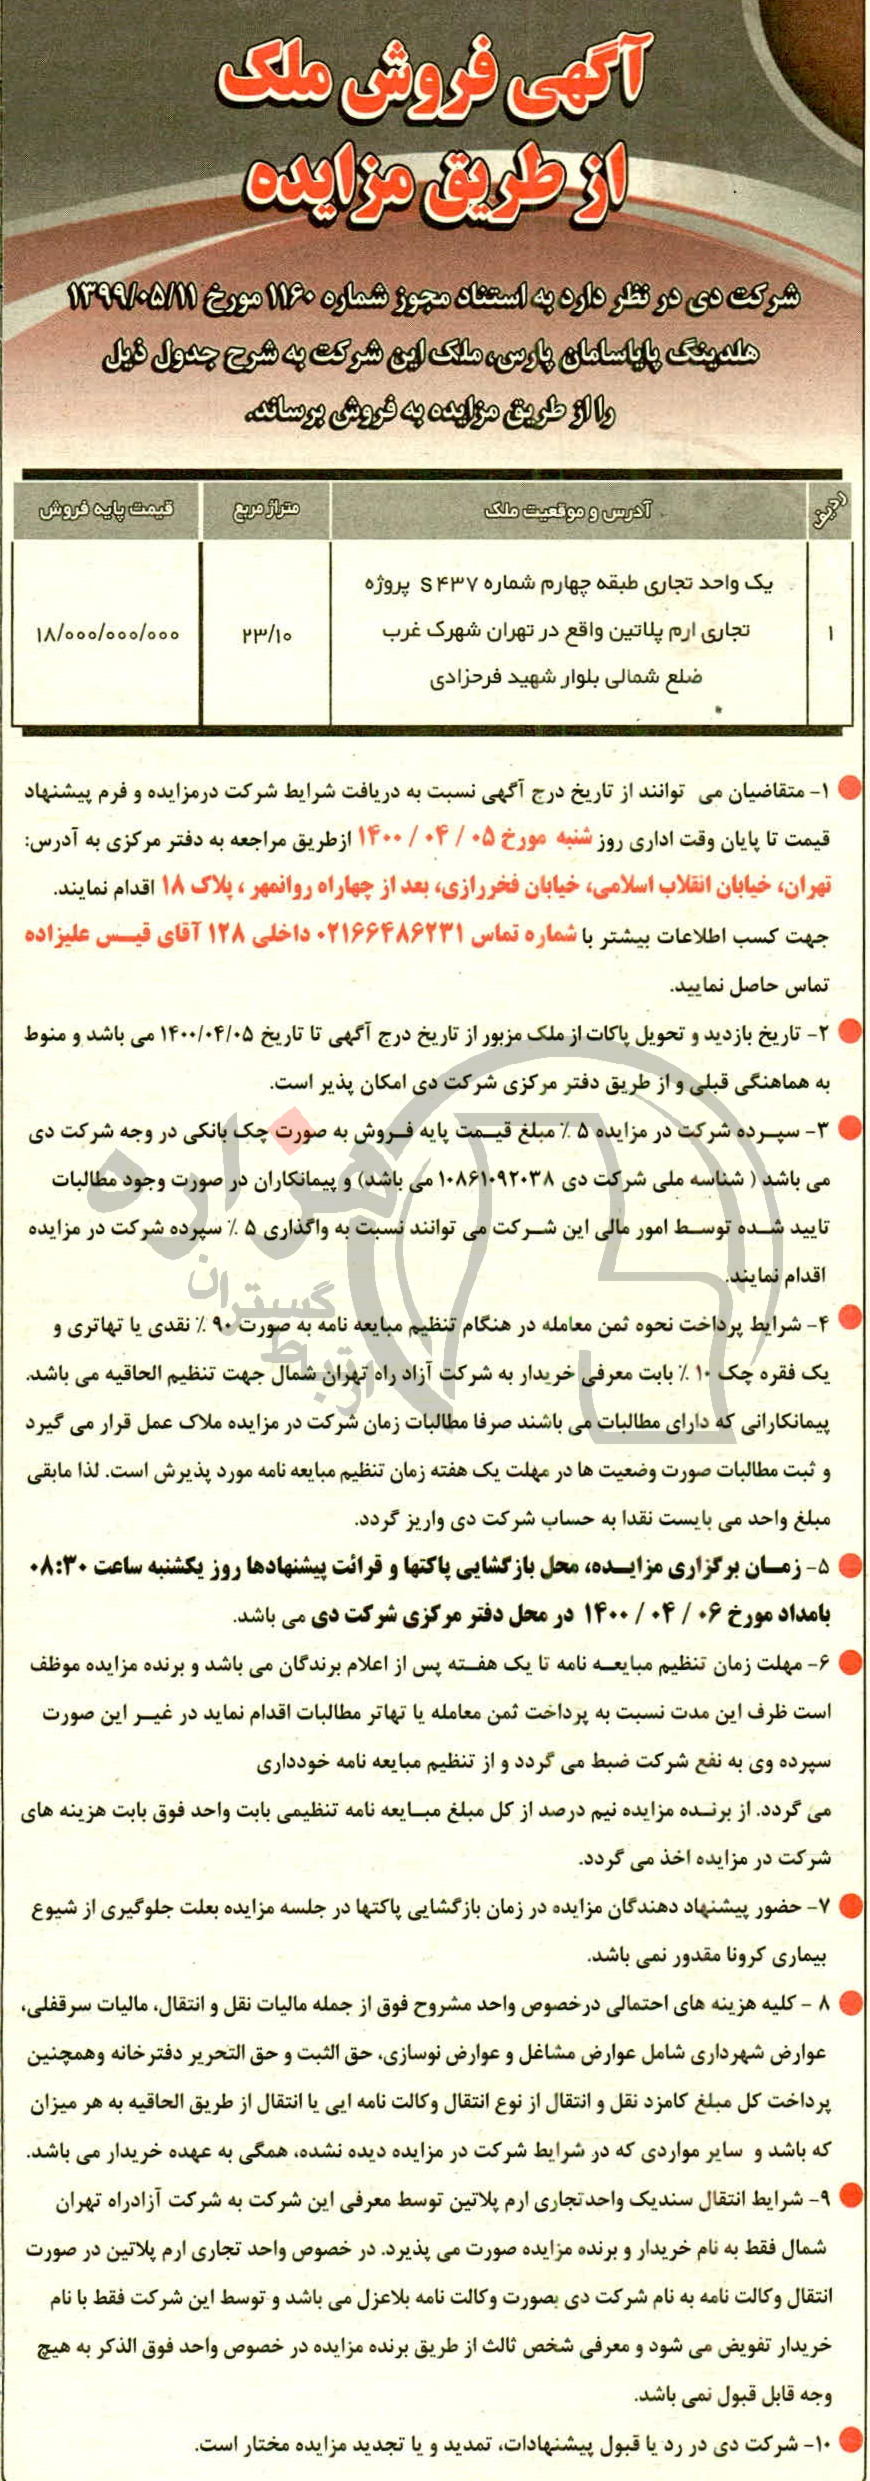 آگهی فروش ملک
از طریق مزایده
شرکت دی در نظر دارد به استناد مجوز شماره ۱۱۶۰ مورخ ۱۳۹۹/۰۵/۱۱
هلدینگ پایاسامان پارس، ملک این شرکت به شرح جدول ذیل
را از طریق مزایده به فروش برساند.
ردیف آدرس و موقعیت ملک متراژ مربع قیمت پایه فروش
یک واحد تجاری طبقه چهارم شماره S ۴۳۷ پروژه
۱ تجاری ارم پلاتین واقع در تهران شهرک غرب ۲۳/۱۰ ۱۸/۰۰۰/۰۰۰/۰۰۰
ضلع شمالی بلوار شهید فرحزادی
۱- متقاضیان می توانند از تاریخ درج آگهی نسبت به دریافت شرایط شرکت درمزایده و فرم پیشنهاد
قیمت تا پایان وقت اداری روز شنبه مورخ ۰۵ / ۰۴ / ۱۴۰۰ ازطریق مراجعه به دفتر مرکزی به آدرس:
تهران، خیابان انقلاب اسلامی، خیابان فخررازی، بعد از چهاراه روانمهر ، پلاک ۱۸ اقدام نمایند.
جهت کسب اطلاعات بیشتر با شماره تماس ۰۲۱۶۶۴۸۶۲۳۱ داخلی ۱۲۸ آقای قیس علیزاده
تماس حاصل نمایید.
۲- تاریخ بازدید و تحویل پاکات از ملک مزبور از تاریخ درج آگهی تا تاریخ ۱۴۰۰/۰۴/۰۵ می باشد و منوط
به هماهنگی قبلی و از طریق دفتر مرکزی شرکت دی امکان پذیر است.
۳- سپرده شرکت در مزایده ۵ ٪ مبلغ قیمت پایه فروش به صورت چک بانکی در وجه شرکت دی
می باشد ( شناسه ملی شرکت دی ۱۰۸۶۱۰۹۲۰۳۸ می باشد) و پیمانکاران در صورت وجود مطالبات
تایید شده توسط امور مالی این شرکت می توانند نسبت به واگذاری ۵ ٪ سپرده شرکت در مزایده
اقدام نمایند.
۴- شرایط پرداخت نحوه ثمن معامله در هنگام تنظیم مبایعه نامه به صورت ۹۰ ٪ نقدی یا تهاتری و
یک فقره چک ۱۰ ٪ بابت معرفی خریدار به شرکت آزاد راه تهران شمال جهت تنظیم الحاقیه می باشد.
پیمانکارانی که دارای مطالبات می باشند صرفا مطالبات زمان شرکت در مزایده ملاک عمل قرار می گیرد
و ثبت مطالبات صورت وضعیت ها در مهلت یک هفته زمان تنظیم مبایعه نامه مورد پذیرش است. لذا مابقی
مبلغ واحد می بایست نقدا به حساب شرکت دی واریز گردد.
۵- زمان برگزاری مزایده، محل بازگشایی پاکتها و قرائت پیشنهادها روز یکشنبه ساعت ۰۸:۳۰
بامداد مورخ ۰۶ / ۰۴ / ۱۴۰۰ در محل دفتر مرکزی شرکت دی می باشد.
۶- مهلت زمان تنظیم مبایعه نامه تا یک هفته پس از اعلام برندگان می باشد و برنده مزایده موظف
است ظرف این مدت نسبت به پرداخت ثمن معامله یا تهاتر مطالبات اقدام نماید در غیر این صورت
سپرده وی به نفع شرکت ضبط می گردد و از تنظیم مبایعه نامه خودداری
می گردد. از برنده مزایده نیم درصد از کل مبلغ مبایعه نامه تنظیمی بابت واحد فوق بابت هزینه های
شرکت در مزایده اخذ می گردد.
۷- حضور پیشنهاد دهندگان مزایده در زمان بازگشایی پاکتها در جلسه مزایده بعلت جلوگیری از شیوع
بیماری کرونا مقدور نمی باشد.
۸ - کلیه هزینه های احتمالی درخصوص واحد مشروح فوق از جمله مالیات نقل و انتقال، مالیات سرقفلی،
عوارض شهرداری شامل عوارض مشاغل و عوارض نوسازی، حق الثبت و حق التحریر دفترخانه وهمچنین
پرداخت کل مبلغ کامزد نقل و انتقال از نوع انتقال وکالت نامه ایی یا انتقال از طریق الحاقیه به هر میزان
که باشد و سایر مواردی که در شرایط شرکت در مزایده دیده نشده، همگی به عهده خریدار می باشد.
۹- شرایط انتقال سندیک واحدتجاری ارم پلاتین توسط معرفی این شرکت به شرکت آزادراه تهران
شمال فقط به نام خریدار و برنده مزایده صورت می پذیرد. در خصوص واحد تجاری ارم پلاتین در صورت
انتقال وکالت نامه به نام شرکت دی بصورت وکالت نامه بلاعزل می باشد و توسط این شرکت فقط با نام
خریدار تفویض می شود و معرفی شخص ثالث از طریق برنده مزایده در خصوص واحد فوق الذکر به هیچ
وجه قابل قبول نمی باشد.
۱۰- شرکت دی در رد یا قبول پیشنهادات، تمدید و یا تجدید مزایده مختار است.
هزاره
گستران
ارتباط